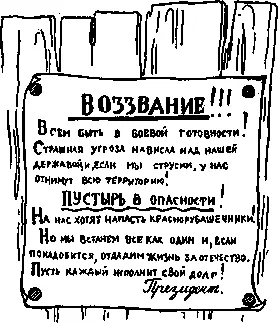 ВОЗЗВАНИЕ!!!
Всем быть в боевой готовности!
Страшная угроза нависла над нашей
державой, и если мы струсим, у нас
отнимут всю территорию!
ПУСТЫРЬ В ОПАСНОСТИ!
На нас хотят напасть краснорубашечники!
Но мы встанем все как один и, если
понадобится, отдадим жизнь за отечество.
Пусть каждый исполнит свой долг!
Президент.